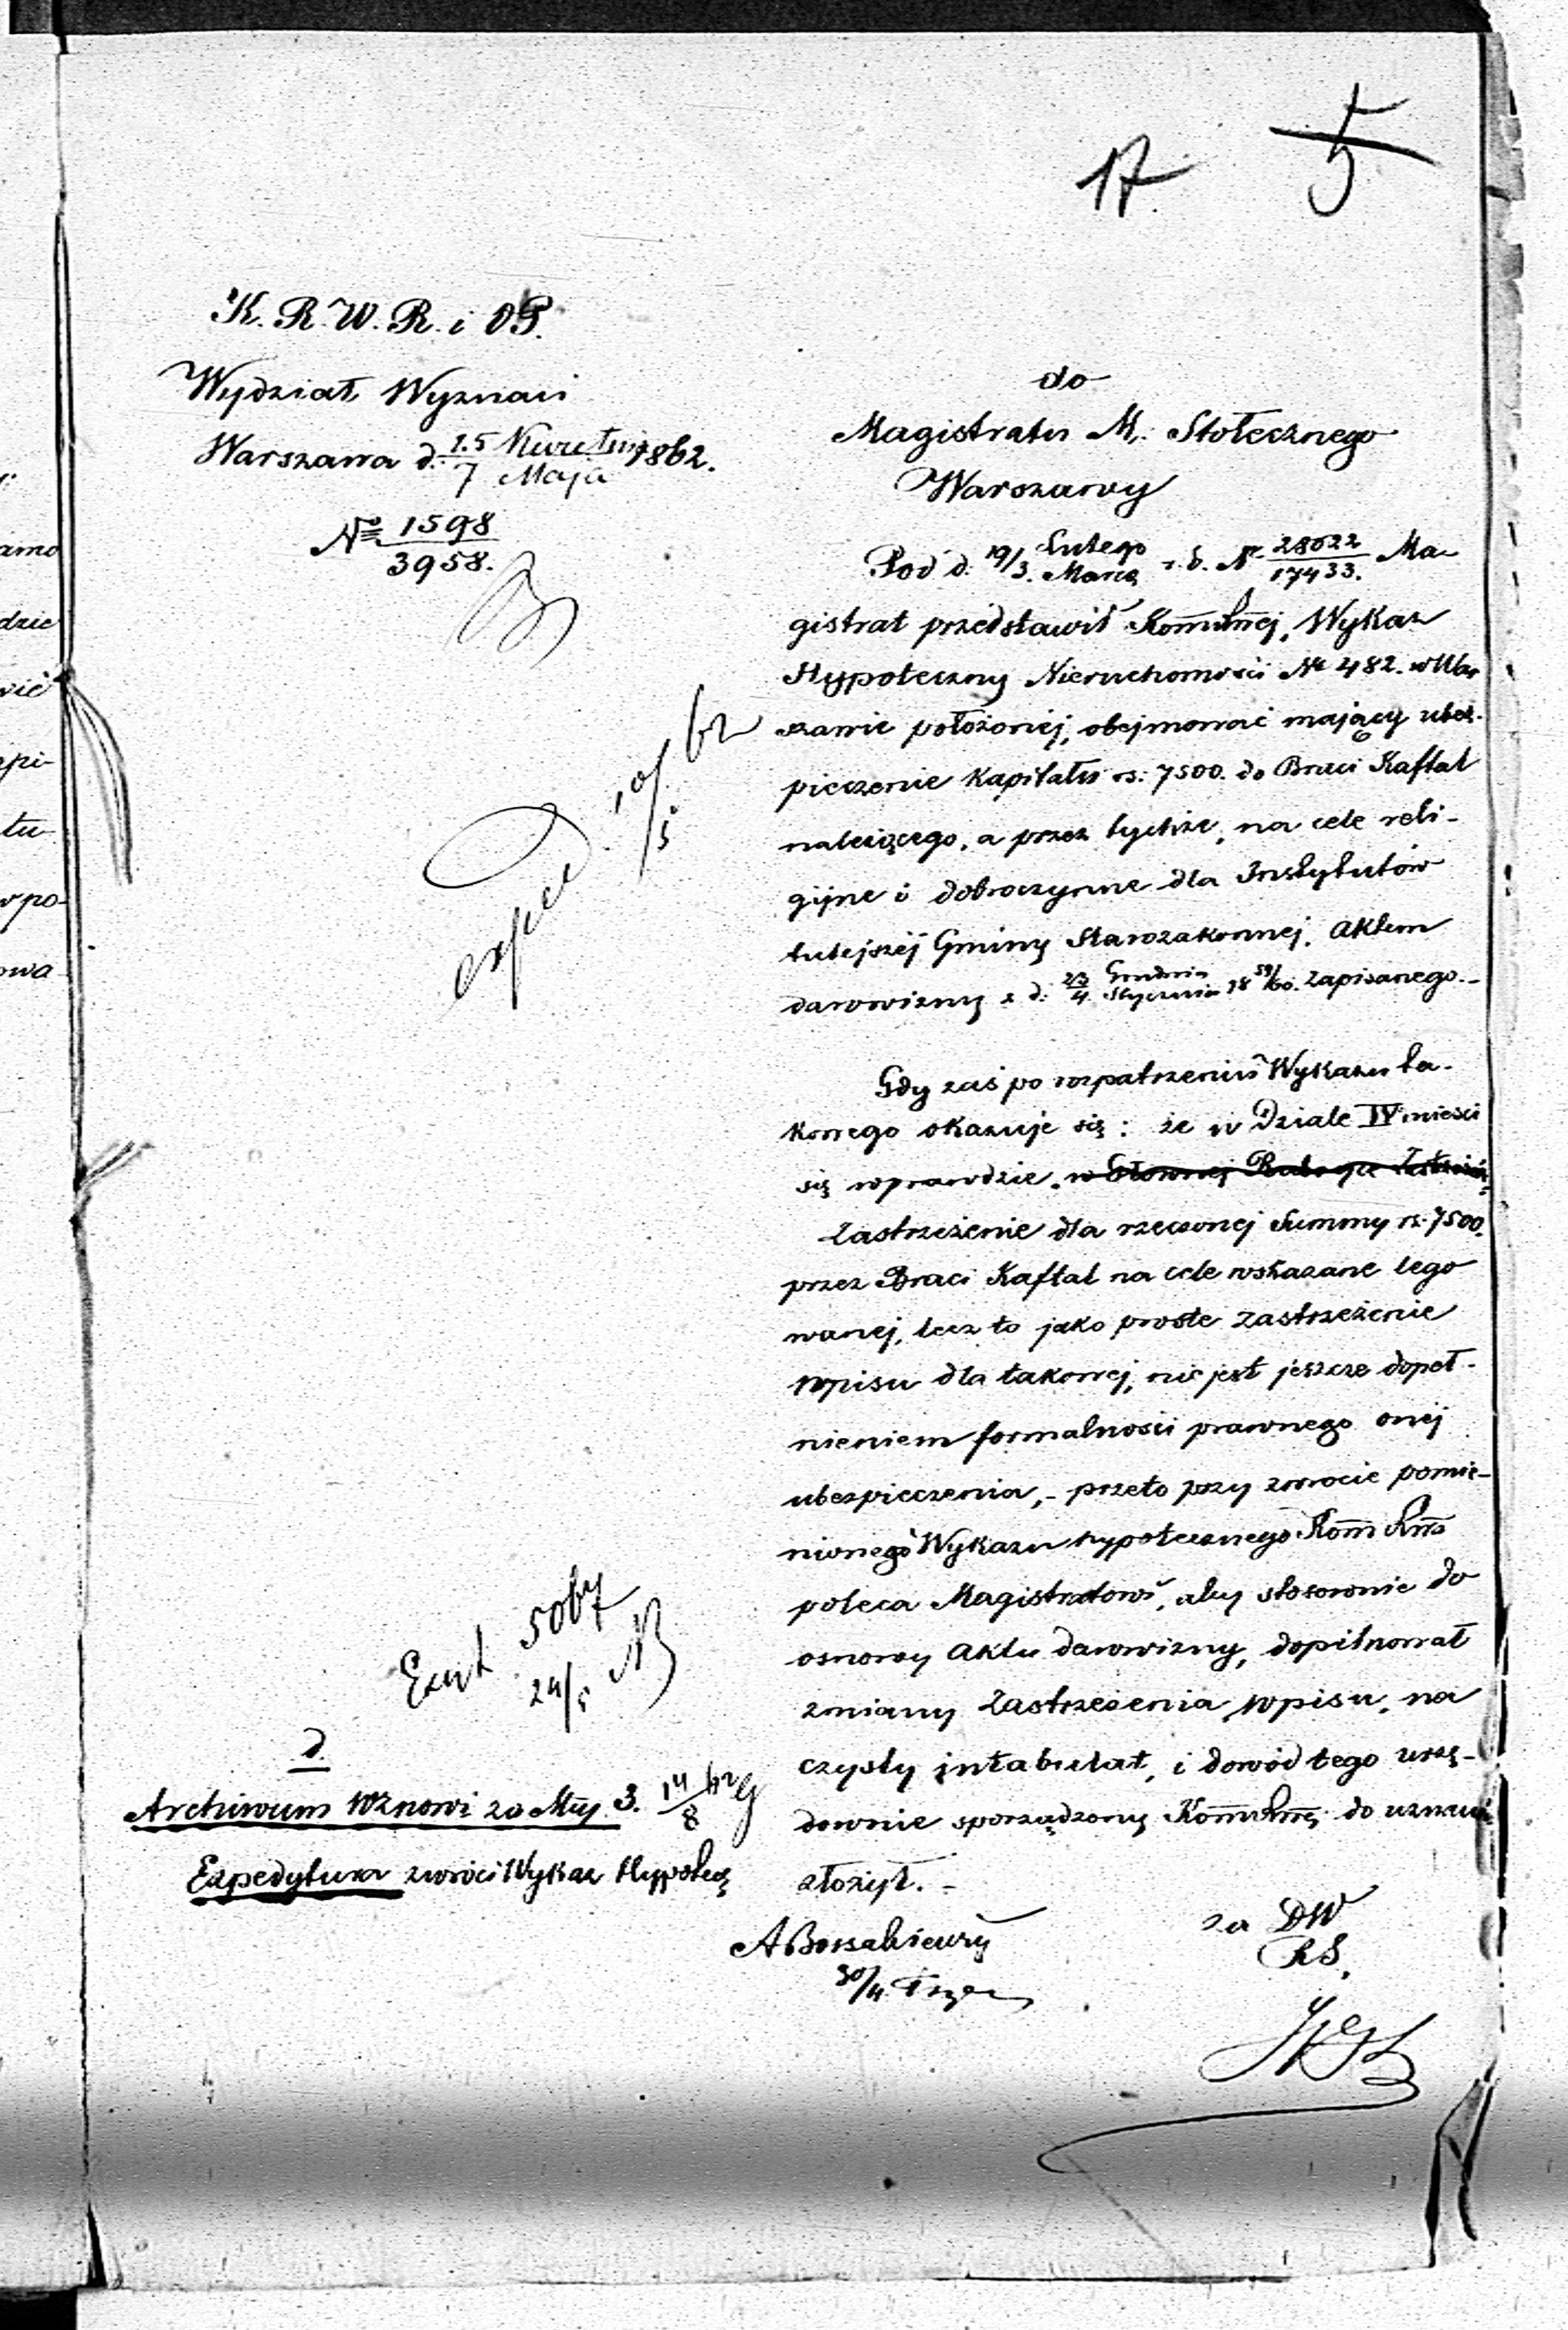 17. 5
K. R. W. R. i O P.
Wydział Wyznań
Warszawa d. 25 Kwietnia / 7 Maja 1862.
№ 1598 / 3958.
do
Magistratu M. Stołecznego
Warszawy
Pod d. 19/3. Lutego / Marca r. b. Nr 28022 / 17433. Ma-
gistrat przedstawił Kommssnej, Wykaz
Hypoteczny Nieruchomości Nr 482. w War
szawie położonej, obejmować mający ubez-
pieczenie Kapitału rs: 7500. do Braci Kaftal
należącego, a przez tychże, na cele reli-
gijne i dobroczynne dla Instytutów
tutejszéj Gminy Starozakonnej, Aktem
darowizny z d: 23/4. Grudnia / Stycznia 18 59/60. zapisanego.-
Gdy zaś po rozpatrzeniu Wykazu ta-
kowego okazuje się: że w Dziale IV mieści
się wprawdzie, w Głównej Rubryce
Zastrzeżenie dla rzeczonej Summy rs. 7500.
przez Braci Kaftal na cele wskazane lego
wanej, lecz to jako proste zastrzeżenie
wpisu dla takowej, nie jest jeszcze dopeł-
nieniem formalności prawnego onéj
ubezpieczenia,- przeto przy zwrocie pomie-
nionego Wykazu hypotecznego Komm
poleca Magistratowi, aby stosownie do
osnowy Aktu darowizny, dopilnował
zmiany Zastrzeżenia wpisu, na
czysty intabulat, i dowód tego urzę-
downie sporządzony do uznania
złożył.-
za DW
RS.
30/4
exped. 10/5 62
5067
24/5
d.
Archiwum wznowi za Mcy 3. 14/8 62
Expedytura zwróci Wykaz Hypotecz
amo
dzie
wić
epi-
tu-
w po-
owa